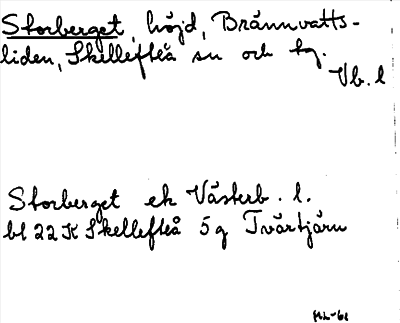 Storberget, höjd, Brännvatts-
liden, Skellefteå sn och tg.
Vb. l
Storberget ek Västerb. l.
bl 22 K Skellefteå 5g Tvärtjärn
ML-61